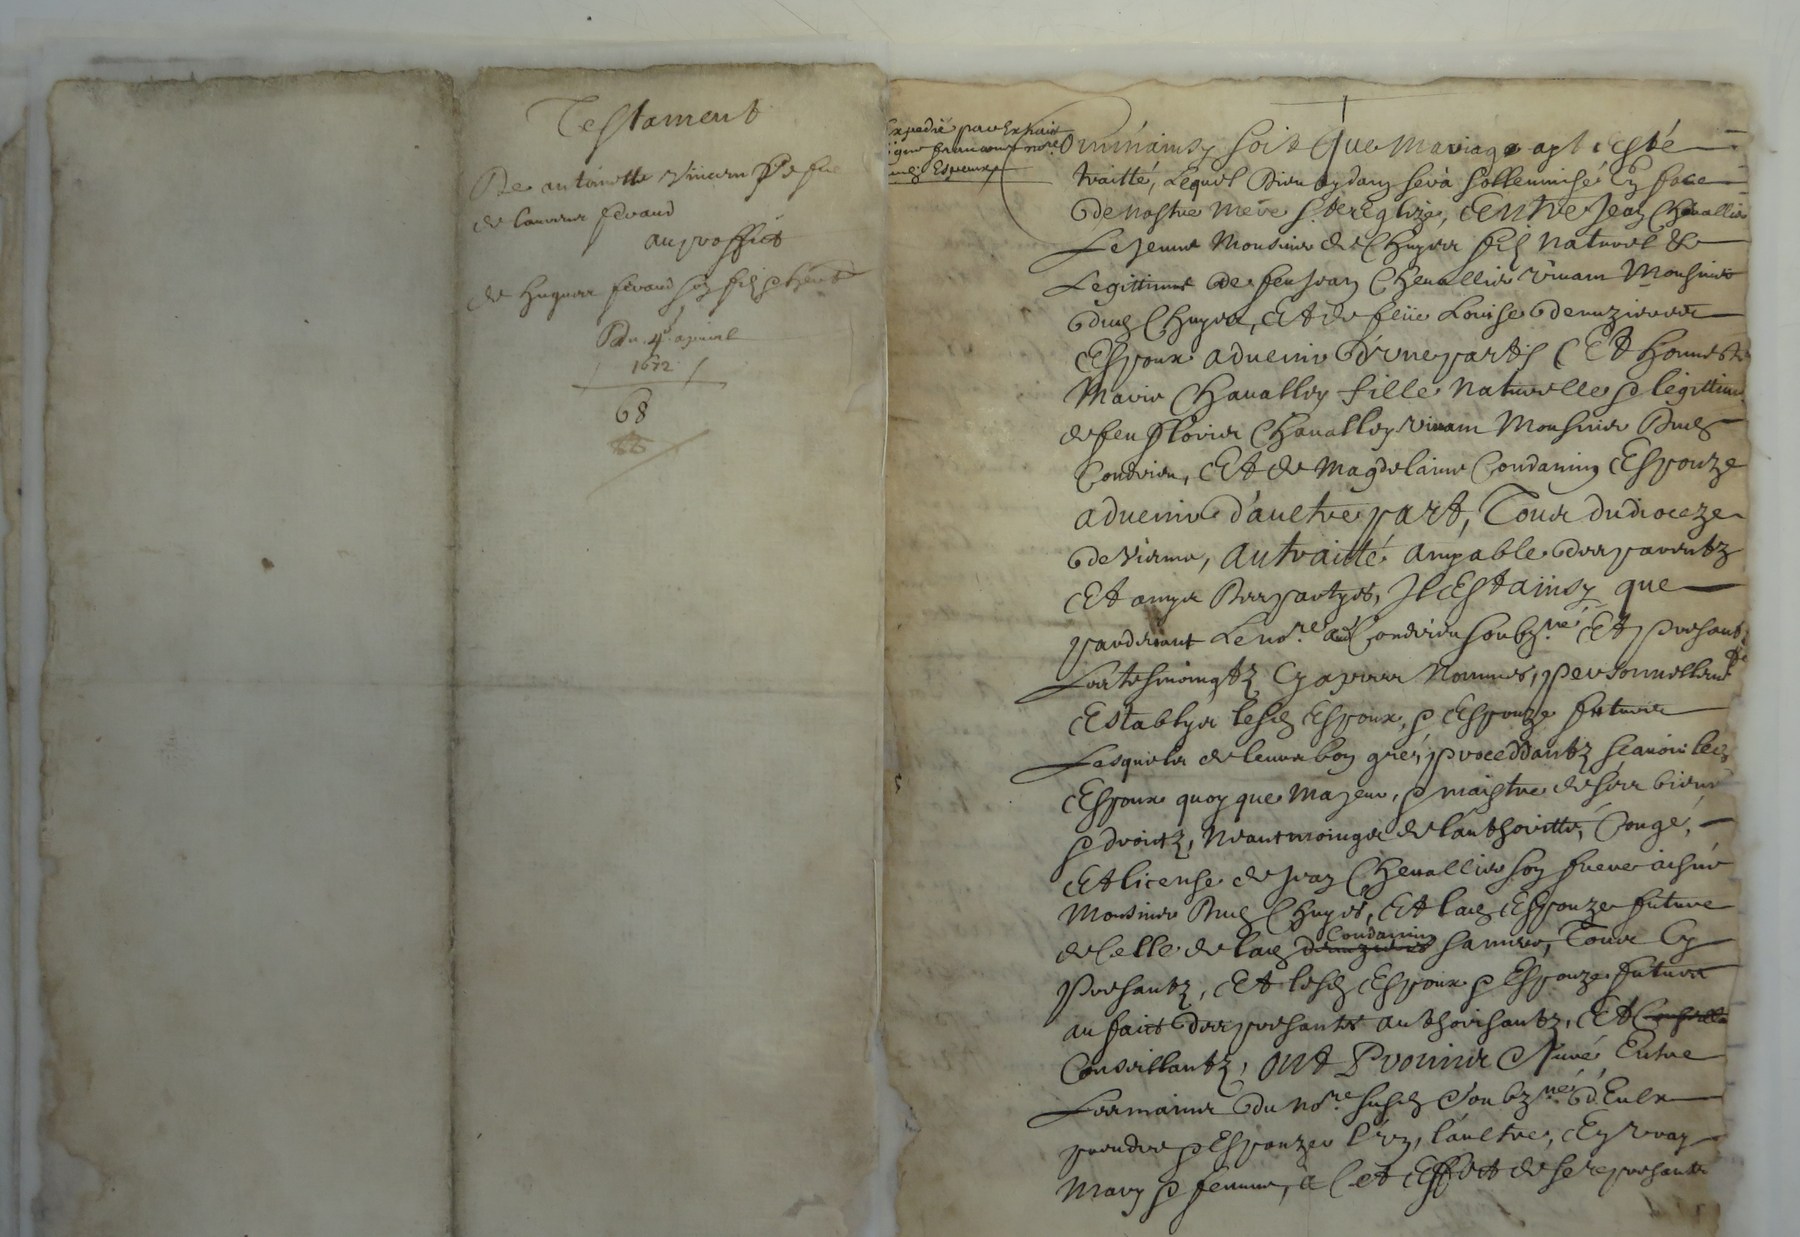 Testament
De antoinette vincen
de laurens feraud
au proffict
de hugues feraud son filz & herit
Du 4e apvril
1672
68
Expedié par Extraict
Espoux
Comme ainsy soit que Mariage ayt esté
traitté, Lequel Dieu aydant sera sollemnisé En face
de nostre mere ste Eglize, Entre Jean Chevallier
Le Jeune Mousnier de Chuyes filz naturel &
Legittime de feu Jean Chevallier vivant Mousnier
dud Chuyes, Et de feüe Louise Denuzieres
Espoux advenir d'une part, Et honneste
Marie Chavalley fille naturelle & legittime
de feu Chavalley vivant Mousnier Dud
Condrieu, Et de Magdelaine Condamin Espouze
advenir d'aultre part, Tous du dioceze
de Vienne, au traitté amyable des parentz
Et amys Des partyes, Il Est ainsy que
pardevant Le nore aud Condrieu soubzne Et presentz
Les tesmoingtz Cy apres nommés, personnellemt
Establys lesd Espoux, & Espouze futurs
Lesquels de leur bon gré, proceddantz scavoir led
Espoux quoy que majeur, & maistre de ses biens
& droictz, neantmoinges de lauthoritté, Congé,
Et license de Jean Chevallier son frere aisné
Mousnier Dud Chuyes, Et lad Espouze future
de Celle de lad Condamin sa mere, Tous Cy
presantz, Et lesd Espoux & Espouze futurs
au faict des presantes authorisantz, Et
Conseillantz, ont Promis & Juré Entre
Les mains du nore susd soubzné d'Eulx
prendre & Espouzer l'un, l'aultre, En vray
Mary & femme, a Cet Effect de se representer